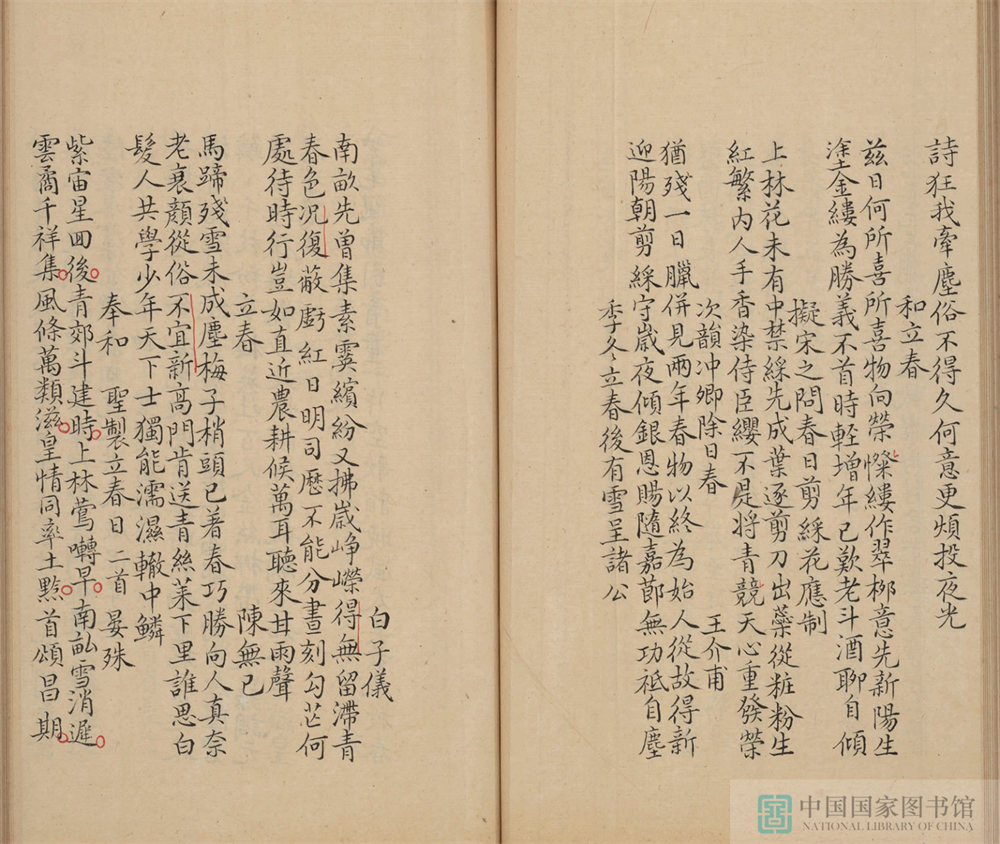 詩狂我牽塵俗不得久何意更煩投夜光
和立春
茲日何所喜所喜物向榮慘縷作翠柳意先新陽生
塗金縷為勝義不首時輊增年已歎老斗酒聊自傾
擬宋之問春日剪綵花應制
上林花未有中禁綵先成葉逐剪刀出蘂從粧粉生
紅繁內人手香染侍臣纓不是將青競天心重發榮
次韻沖卿除日春 王介甫
猶殘一日臘併見兩年春物以終為始人從故得新
迎陽朝剪綵守歲夜傾銀恩賜隨嘉節無功祗自塵
季冬立春後有雪呈諸公
白子儀
南畝先曾集素霙繽紛又拂歲崢嶸得無留滯青
春色況復蔽虧紅日明司歷不能分晝刻勾芒何
處待時行豈如直近農耕候萬耳聽來甘雨聲
立春 陳無已
馬蹄殘雪未成塵梅子梢頭已着春巧勝向人真奈
老衰顏從俗不宜新高門肯送青絲菜下里誰思白
髮人共學少年天下士獨能濡濕轍中鱗
奉和 聖製立春日二首 晏殊
紫宙星回後青郊斗建時上林鶯囀早南畝雪消遲
雲矞千祥集風條萬類滋皇情同率土黔首頌昌期
中国国家图书馆
NATIONAL LIBRARY OF CHINA